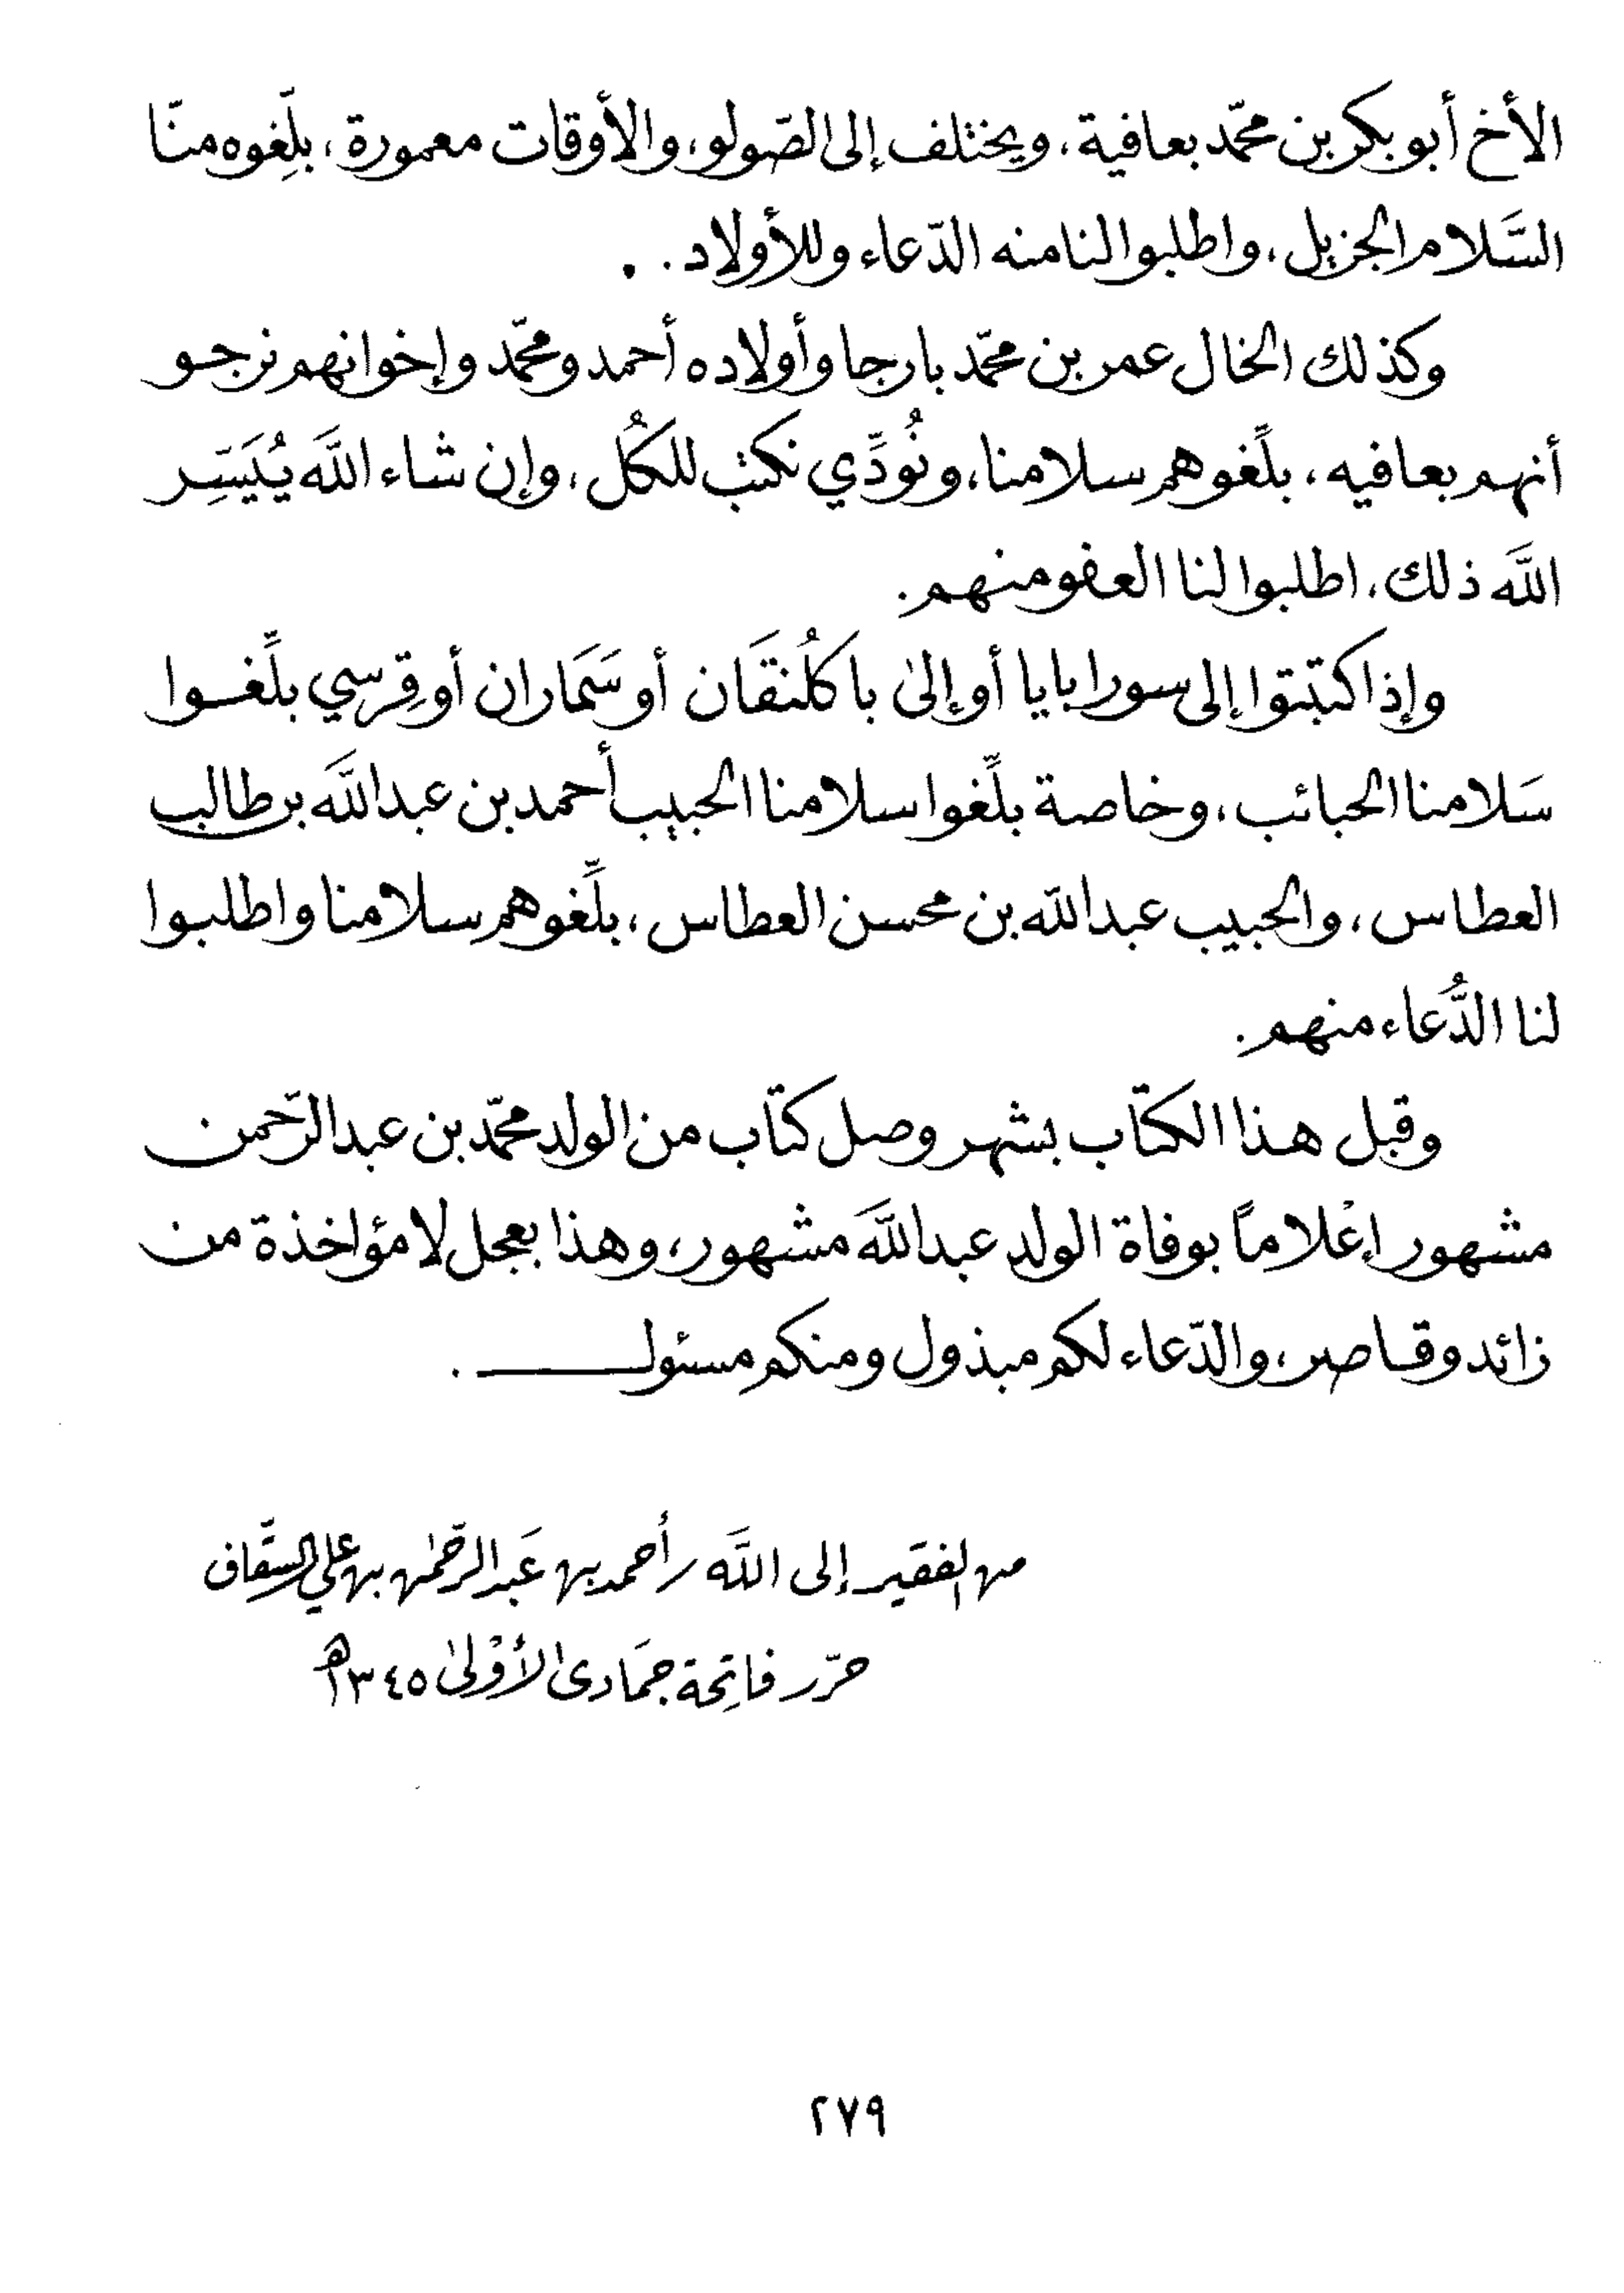 الأخ أبو بكر بن محمّد بعافية، ويختلف إلى الصّولو، والأوقات معمورة، بلِّغوه منّا
السَّلام الجزيل، واطلبوا لنا منه الدّعاء وللأولاد . .
وكذلك الخال عمر بن محمّد بارجا وأولاده أحمد ومحمّد وإخوانهم نرجو
أنهم بعافيه، بلِّغوهم سلامنا، ونُودِّي نكتب للكُل، وإن شاء اللَّه يُيَسِّر
اللَّه ذلك، اطلبوا لنا العفو منهم.
وإذا كتبتوا إلى سورابايا أو إلىٰ باكلُنقَان أو سَمَاران أو قِرسي بلِّغوا
سَلامنا الحبائب، وخاصة بلِّغوا سلامنا الحبيب أحمد بن عبداللَّه بن طالب
العطاس، والحبيب عبدالله بن محسن العطاس، بلِّغوهم سلامنا واطلبوا
لنا الدُّعاء منهم.
وقبل هذا الكتاب بشهر وصل كتاب من الولد محمّد بن عبدالرّحمن
مشهور إعْلاماً بوفاة الولد عبداللَّه مشهور، وهذا بعجل لا مؤاخذة من
زائد وقاصر، والدّعاء لكم مبذول ومنكم مسئول .
من الفقير إلى اللَّه / أحمد بن عَبدالرّحمٰن بن علي السقَّاف
حرّر فاتِحة جمَادى الأوْلىٰ ١٣٤٥هـ
٢٧٩